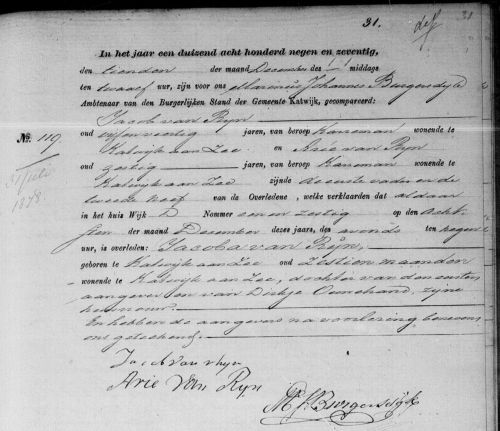 31.
31
In het jaar een duizend acht honderd negen en zeventig,
den tienden der maand December des middags
ten twaalf uur, zijn voor ons Marinus Johannes Burgersdijk
Ambtenaar van den Burgerlijken Stand der Gemeente Katwijk, gecompareerd:
Jacob van Rijn
No. 119.
oud vijf en veertig jaren, van beroep wonende te
Katwijk aan Zee en Arie van Rijn
oud zestig jaren, van beroep wonende te
Katwijk aan Zee zijnde de eerste vader en de
tweede neef van de Overledene, welke verklaarden dat aldaar
in het huis Wijk D Nommer een en zestig op den acht
sten der maand December dezes jaars, des avonds ten negen
uur, is overleden: Jacoba van Rijn,
geboren te Katwijk aan Zee oud zestien maanden
wonende te Katwijk aan Zee, dochter van den eersten
aangever en van Dirkje zijne
huisvrouw.
En hebben de aangevers na voorlezing benevens
ons geteekend.
1878
Jacob van rhyn
Arie Van Ryn
M. J. Burgersdijk